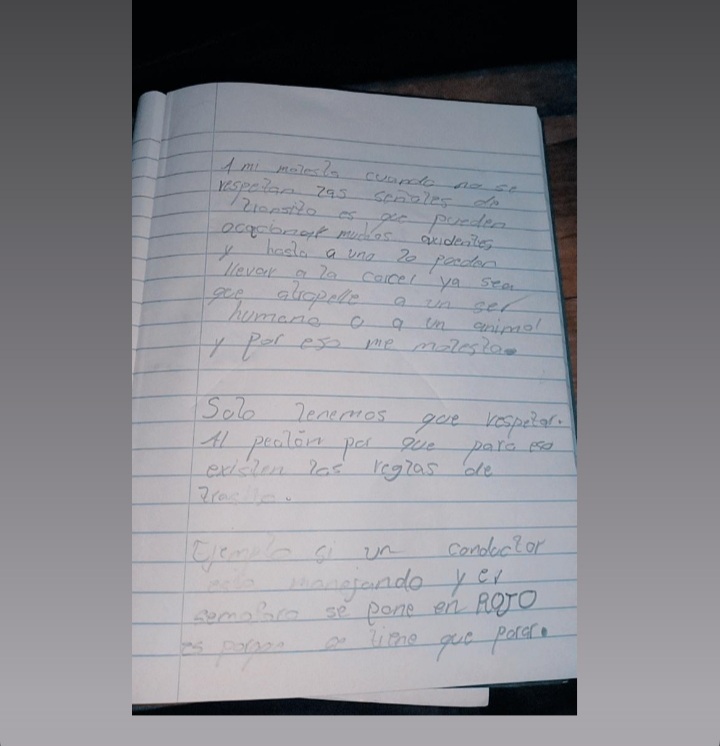 A mi molesta cuando no se
respetan las señales de
transito es que pueden
ocacionar muchos accidentes
y hasta a uno lo pueden
llevar a la carcel ya sea
que atropelle a un ser
humano o a un animal
y por eso me molesta.
Solo tenemos que respetar.
Al peatón por que para eso
existen las reglas de
Ejemplo si un conductor
esta manejando y el
semaforo se pone en ROJO
es porque se tiene que parar.